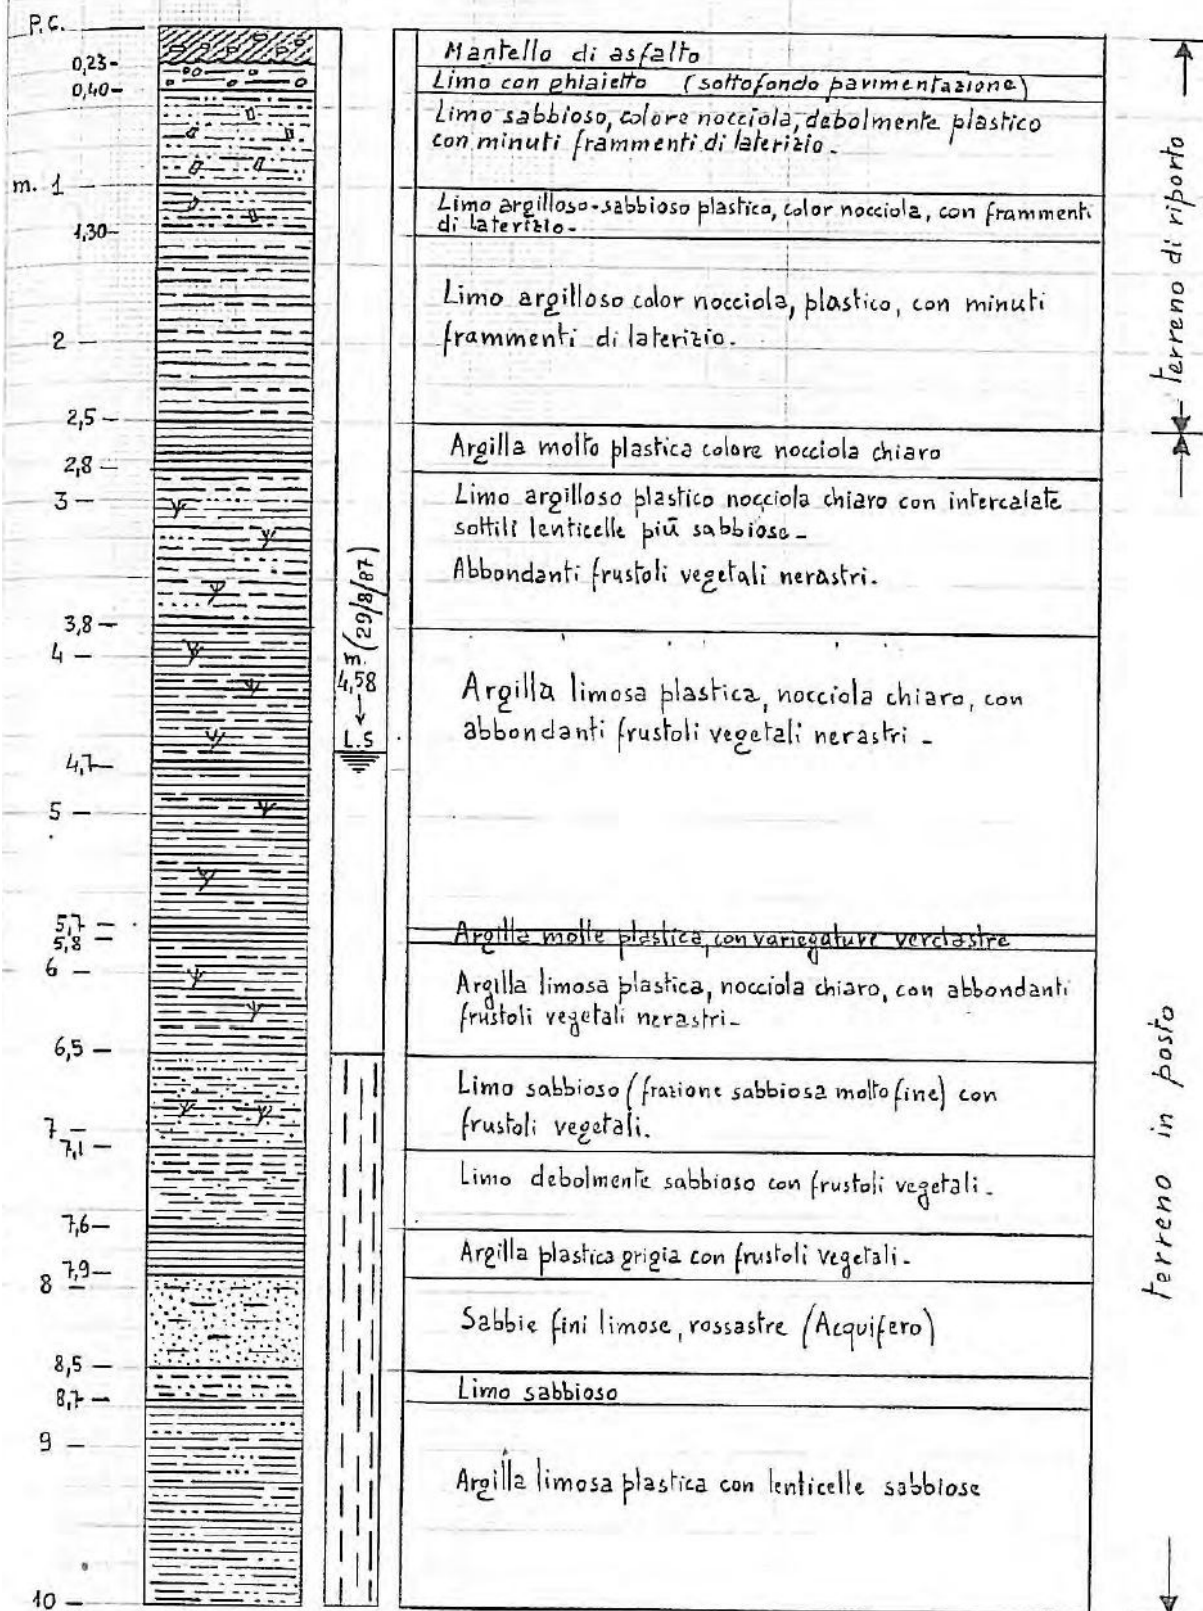 P.C.
Mantello di asfalto
0,23-
Limo con ghiaietto (sottofondo pavimentazione)
0,40-
Limo sabbioso, colore nocciola, debolmente plastico
con minuti frammenti di laterizio.
m. 1
Limo argilloso-sabbioso plastico, color nocciola, con frammenti
di laterizio.
1,30-
Limo argilloso color nocciola, plastico, con minuti
frammenti di laterizio.
2
terreno di riporto
2,5
Argilla molto plastica colore nocciola chiaro
2,8
3
Limo argilloso plastico nocciola chiaro con intercalate
sottili lenticelle più sabbiose -
Abbondanti frustoli vegetali nerastri.
3,8
4
m. (29/8/87)
4,58
L.S
Argilla limosa plastica, nocciola chiaro, con
abbondanti frustoli vegetali nerastri -
4,7
5
5,7
Argilla molle plastica, con variegature verdastre
5,8
6
Argilla limosa plastica, nocciola chiaro, con abbondanti
frustoli vegetali nerastri -
6,5
Limo sabbioso (frazione sabbiosa molto fine) con
frustoli vegetali.
7
7,1
Limo debolmente sabbioso con frustoli vegetali -
terreno in posto
7,6
Argilla plastica grigia con frustoli vegetali -
7,9
8
Sabbie fini limose, rossastre (Acquifero)
8,5
Limo sabbioso
8,7
9
Argilla limosa plastica con lenticelle sabbiose
10